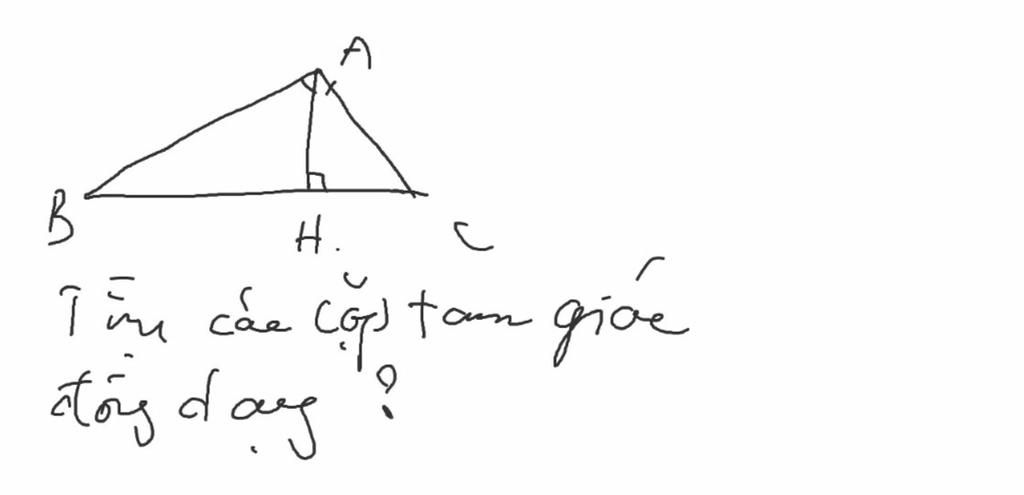 A
B
H.
C
Tìm các cặp tam giác
đồng dạng ?